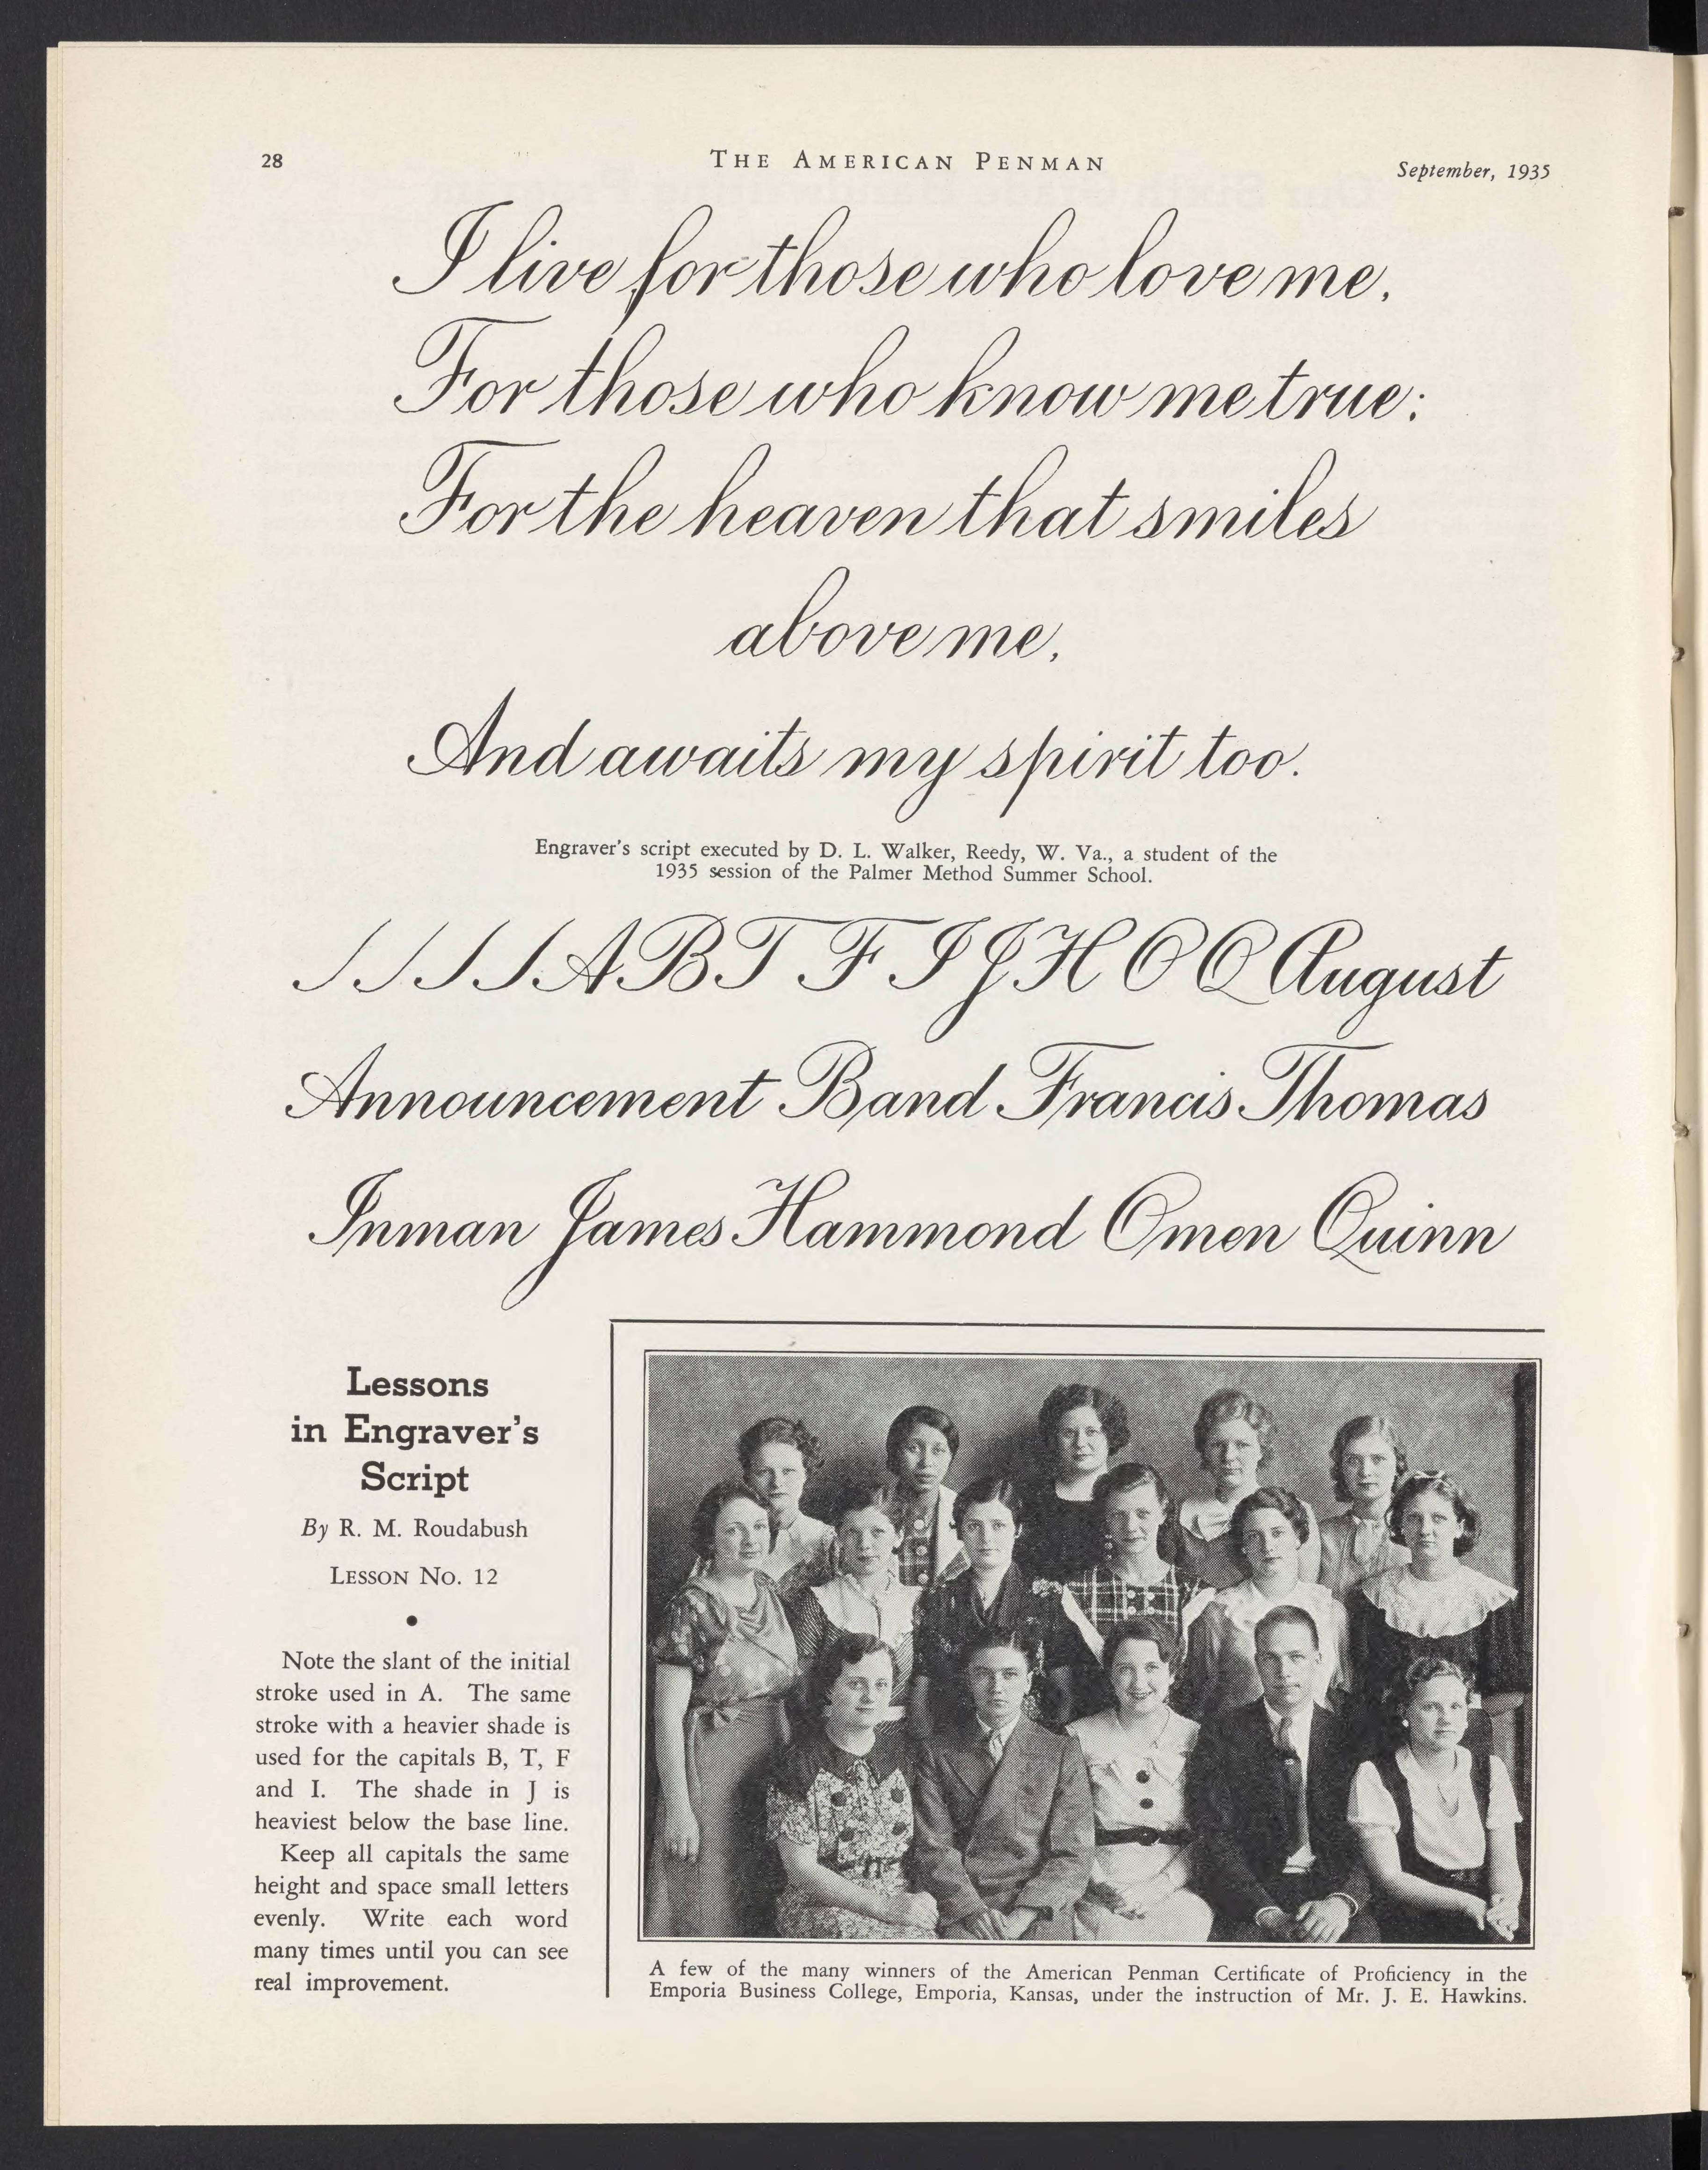 28
THE AMERICAN PENMAN
September, 1935
I live for those who love me,
For those who know me true;
For the heaven that smiles
above me,
And awaits my spirit too.
Engraver's script executed by D. L. Walker, Reedy, W. Va., a student of the
1935 session of the Palmer Method Summer School.
A B T F I J H O Q August
Announcement Band Francis Thomas
Inman James Hammond Omen Quinn
Lessons
in Engraver's
Script
By R. M. Roudabush
LESSON NO. 12
Note the slant of the initial
stroke used in A. The same
stroke with a heavier shade is
used for the capitals B, T, F
and I. The shade in J is
heaviest below the base line.
Keep all capitals the same
height and space small letters
evenly. Write each word
many times until you can see
real improvement.
A few of the many winners of the American Penman Certificate of Proficiency in the
Emporia Business College, Emporia, Kansas, under the instruction of Mr. J. E. Hawkins.